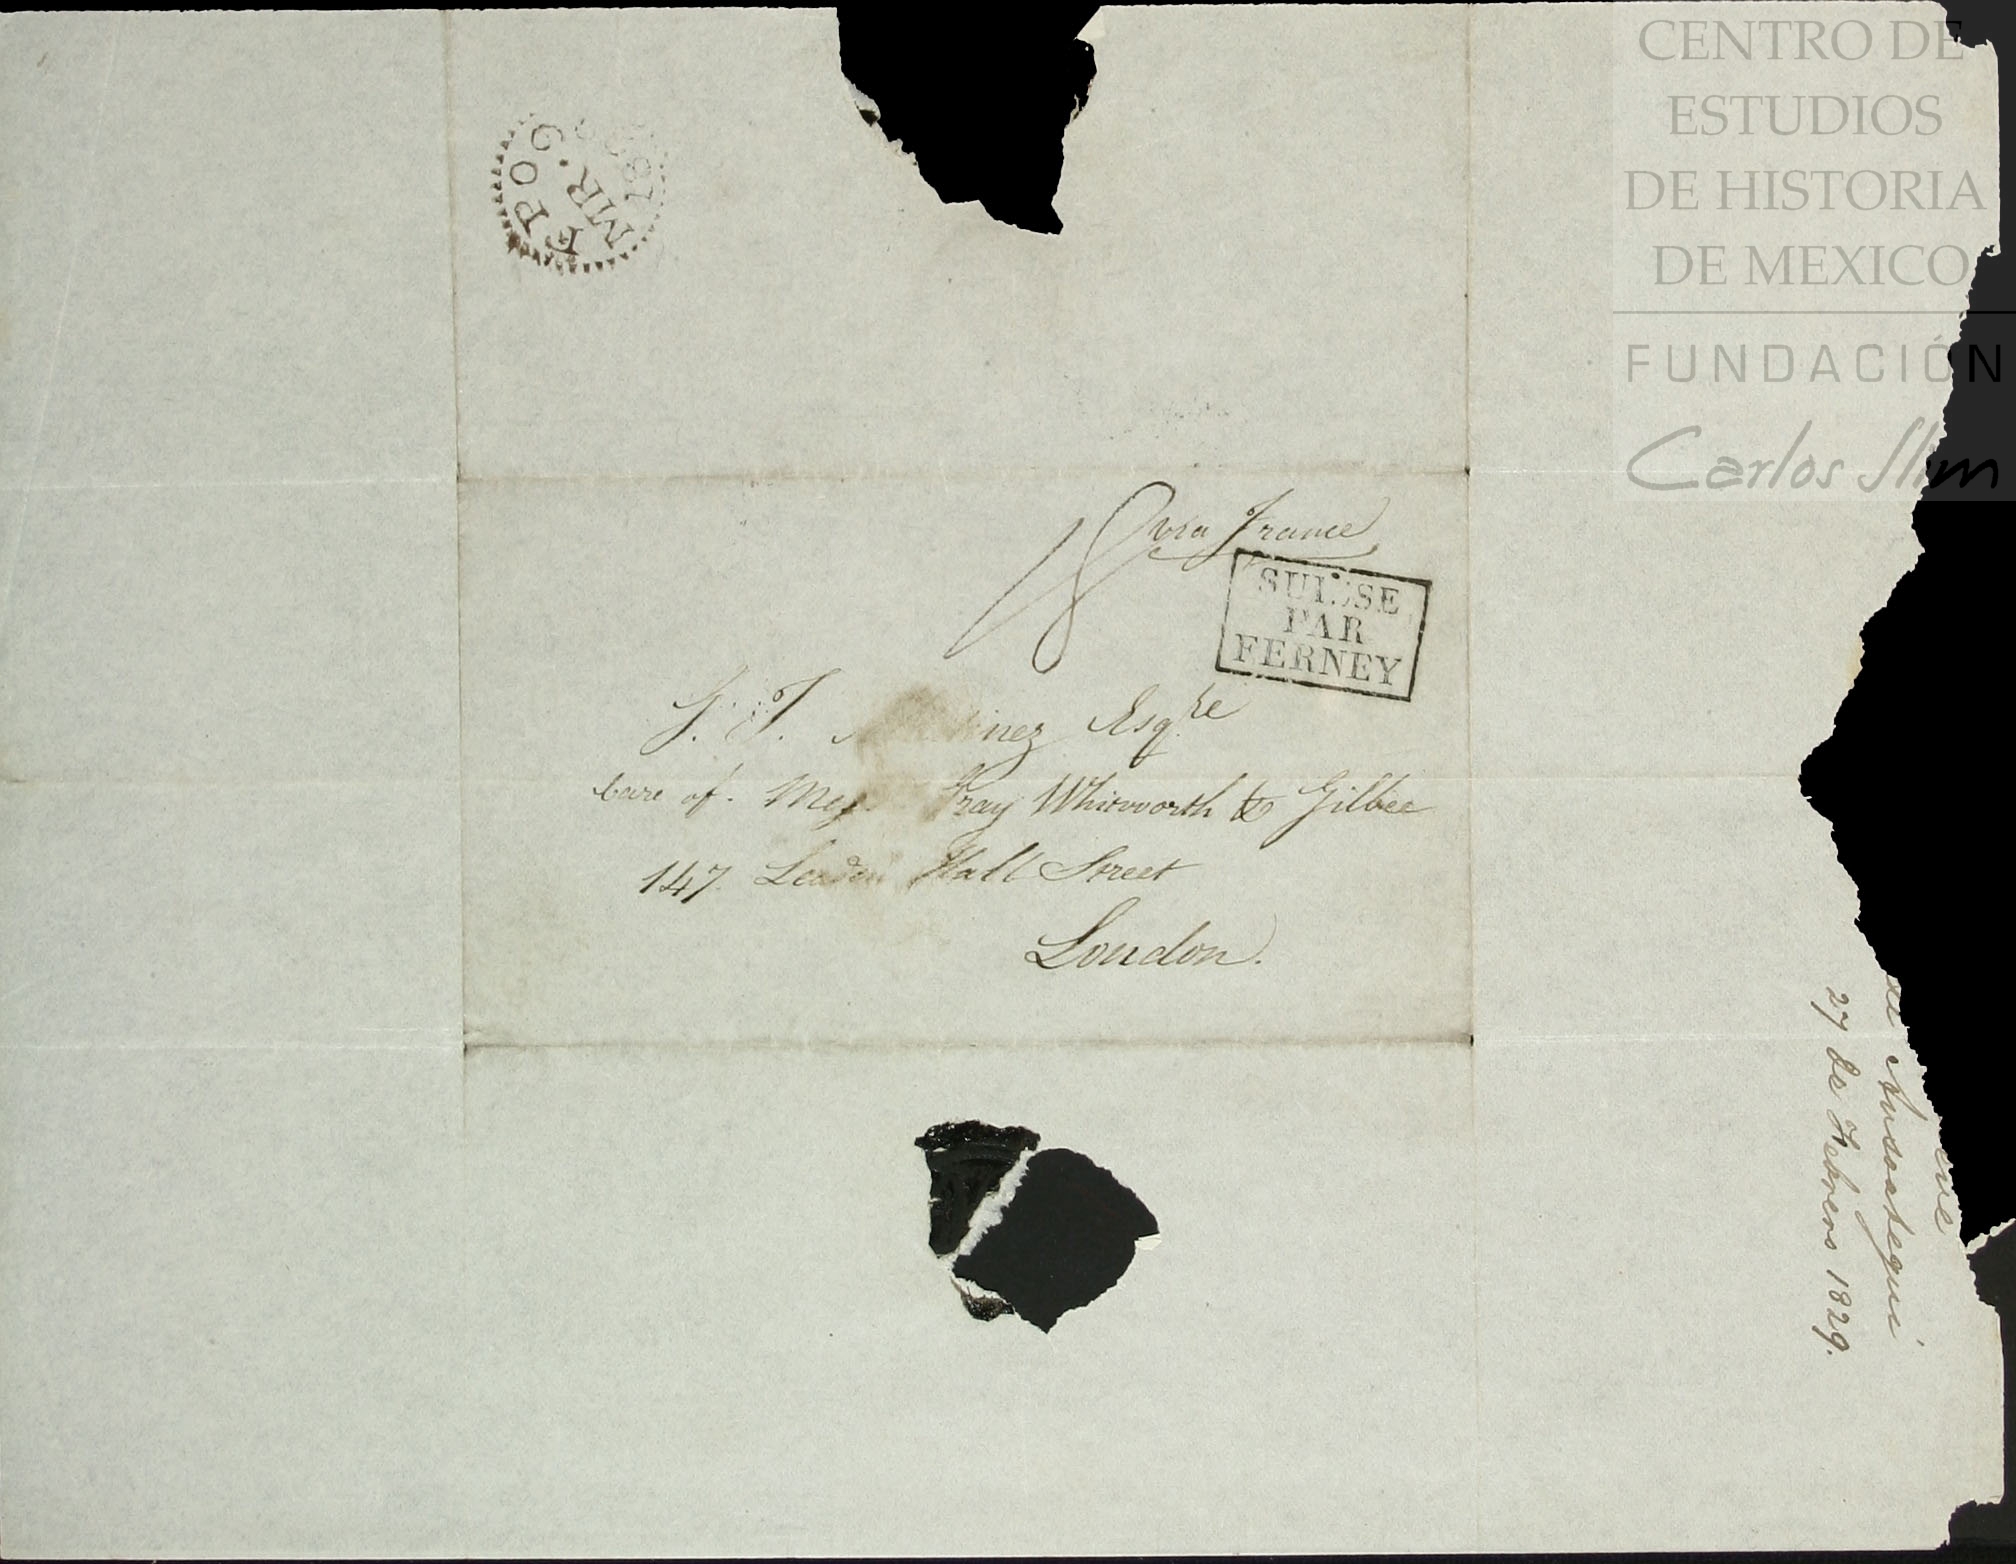 CENTRO DE
ESTUDIOS
DE HISTORIA
DE MEXICO
FUNDACIÓN
Carlos Slim
FPO
MR. 9
18
18
via France
SUISSE
PAR
FERNEY
J. T. inez Esqre
Care of. Gray Whitworth & Gilbee
147. Leaden Hall Street
London.
eve
Ausoategui
27 de Febrero 1829.